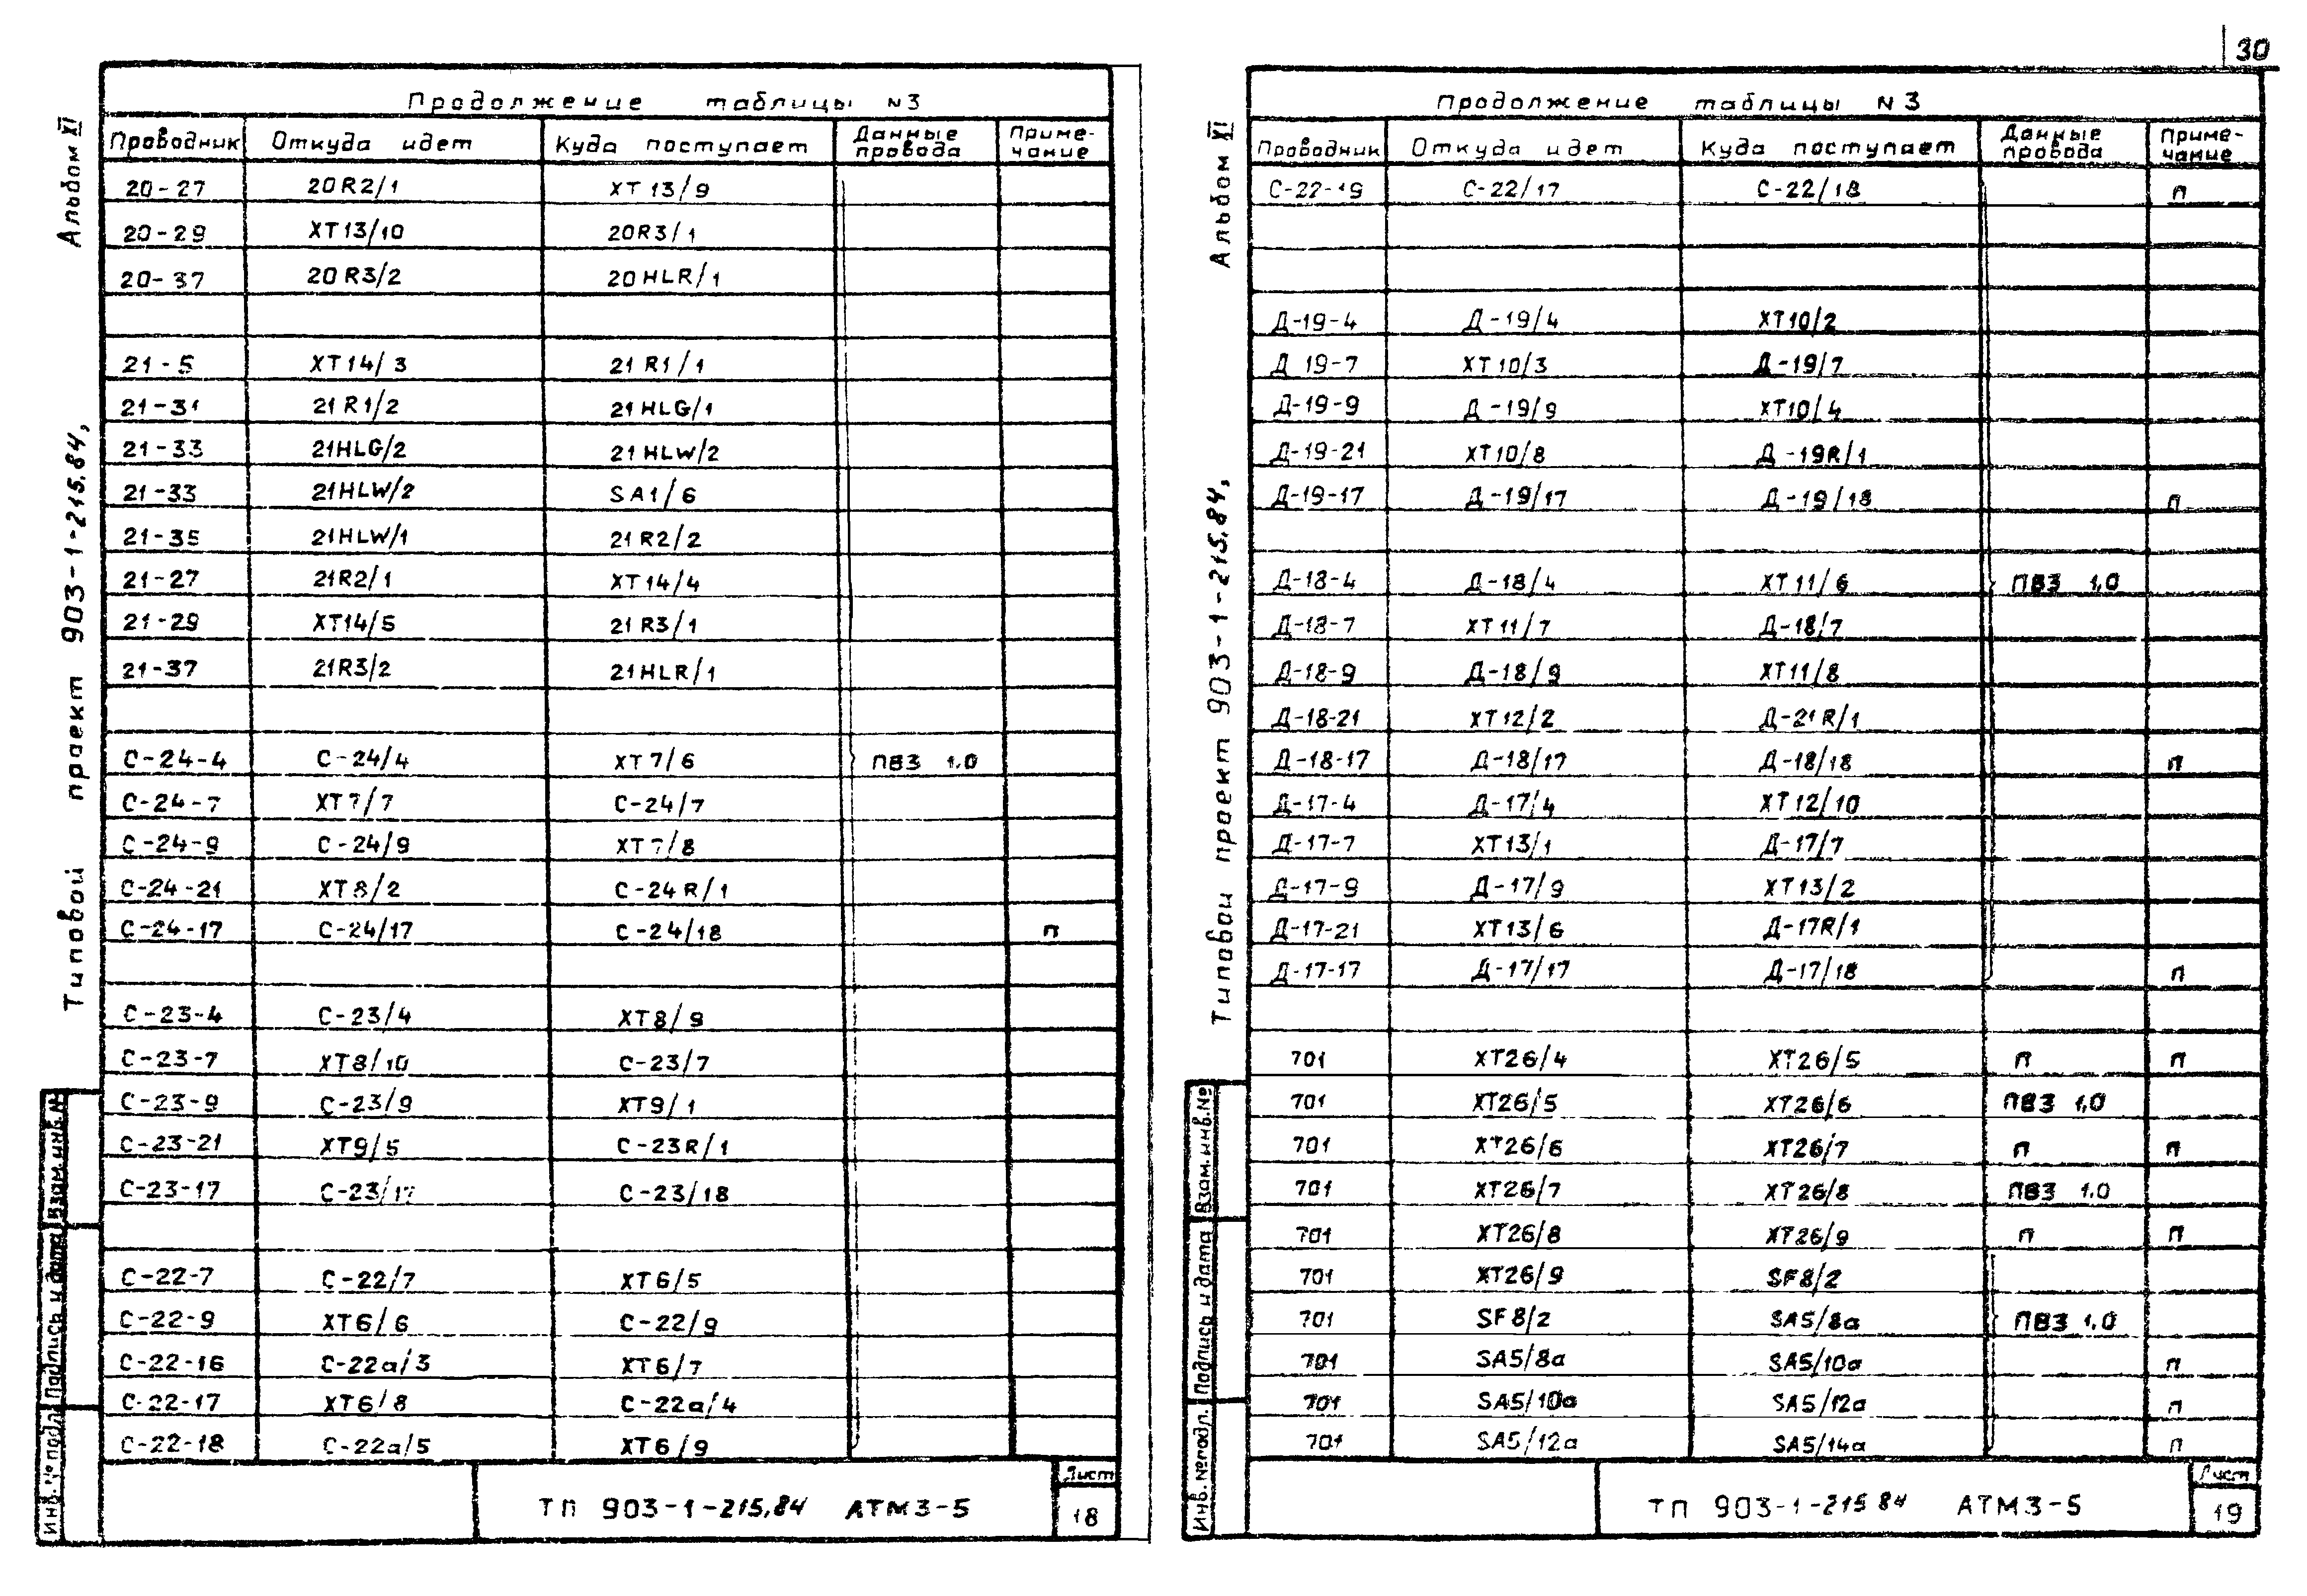 30
Альбом XI
Типовой проект 903-1-215.84,
Продолжение таблицы N3
Проводник Откуда идет Куда поступает Данные провода Приме-чание
20-27 20R2/1 XT13/9
20-29 XT13/10 20R3/1
20-37 20R3/2 20HLR/1
21-5 XT14/3 21R1/1
21-31 21R1/2 21HLG/1
21-33 21HLG/2 21HLW/2
21-33 21HLW/2 SA1/6
21-35 21HLW/1 21R2/2
21-27 21R2/1 XT14/4
21-29 XT14/5 21R3/1
21-37 21R3/2 21HLR/1
С-24-4 С-24/4 XT7/6 ПВ3 1,0
С-24-7 XT7/7 С-24/7
С-24-9 С-24/9 XT7/8
С-24-21 XT8/2 С-24R/1
С-24-17 С-24/17 С-24/18 П
С-23-4 С-23/4 XT8/9
С-23-7 XT8/10 С-23/7
С-23-9 С-23/9 XT9/1
С-23-21 XT9/5 С-23R/1
С-23-17 С-23/17 С-23/18
С-22-7 С-22/7 XT6/5
С-22-9 XT6/6 С-22/9
С-22-16 С-22а/3 XT6/7
С-22-17 XT6/8 С-22а/4
С-22-18 С-22а/5 XT6/9
Инв.№подл. Подпись и дата Взам.инв.№
ТП 903-1-215.84 АТМ3-5
Лист
18
Альбом XI
Типовой проект 903-1-215.84,
Продолжение таблицы N3
Проводник Откуда идет Куда поступает Данные провода Приме-чание
С-22-19 С-22/17 С-22/18 П
Д-19-4 Д-19/4 XT10/2
Д 19-7 XT10/3 Д-19/7
Д-19-9 Д-19/9 XT10/4
Д-19-21 XT10/8 Д-19R/1
Д-19-17 Д-19/17 Д-19/18 П
Д-18-4 Д-18/4 XT11/6 ПВ3 1,0
Д-18-7 XT11/7 Д-18/7
Д-18-9 Д-18/9 XT11/8
Д-18-21 XT12/2 Д-21R/1
Д-18-17 Д-18/17 Д-18/18 П
Д-17-4 Д-17/4 XT12/10
Д-17-7 XT13/1 Д-17/7
Д-17-9 Д-17/9 XT13/2
Д-17-21 XT13/6 Д-17R/1
Д-17-17 Д-17/17 Д-17/18 П
701 XT26/4 XT26/5 П П
701 XT26/5 XT26/6 ПВ3 1,0
701 XT26/6 XT26/7 П П
701 XT26/7 XT26/8 ПВ3 1.0
701 XT26/8 XT26/9 П П
701 XT26/9 SF8/2
701 SF8/2 SA5/8а ПВ3 1,0
701 SA5/8а SA5/10а П
701 SA5/10а SA5/12а П
701 SA5/12а SA5/14а П
Инв.№подл. Подпись и дата Взам.инв.№
ТП 903-1-215 84 АТМ3-5
Лист
19